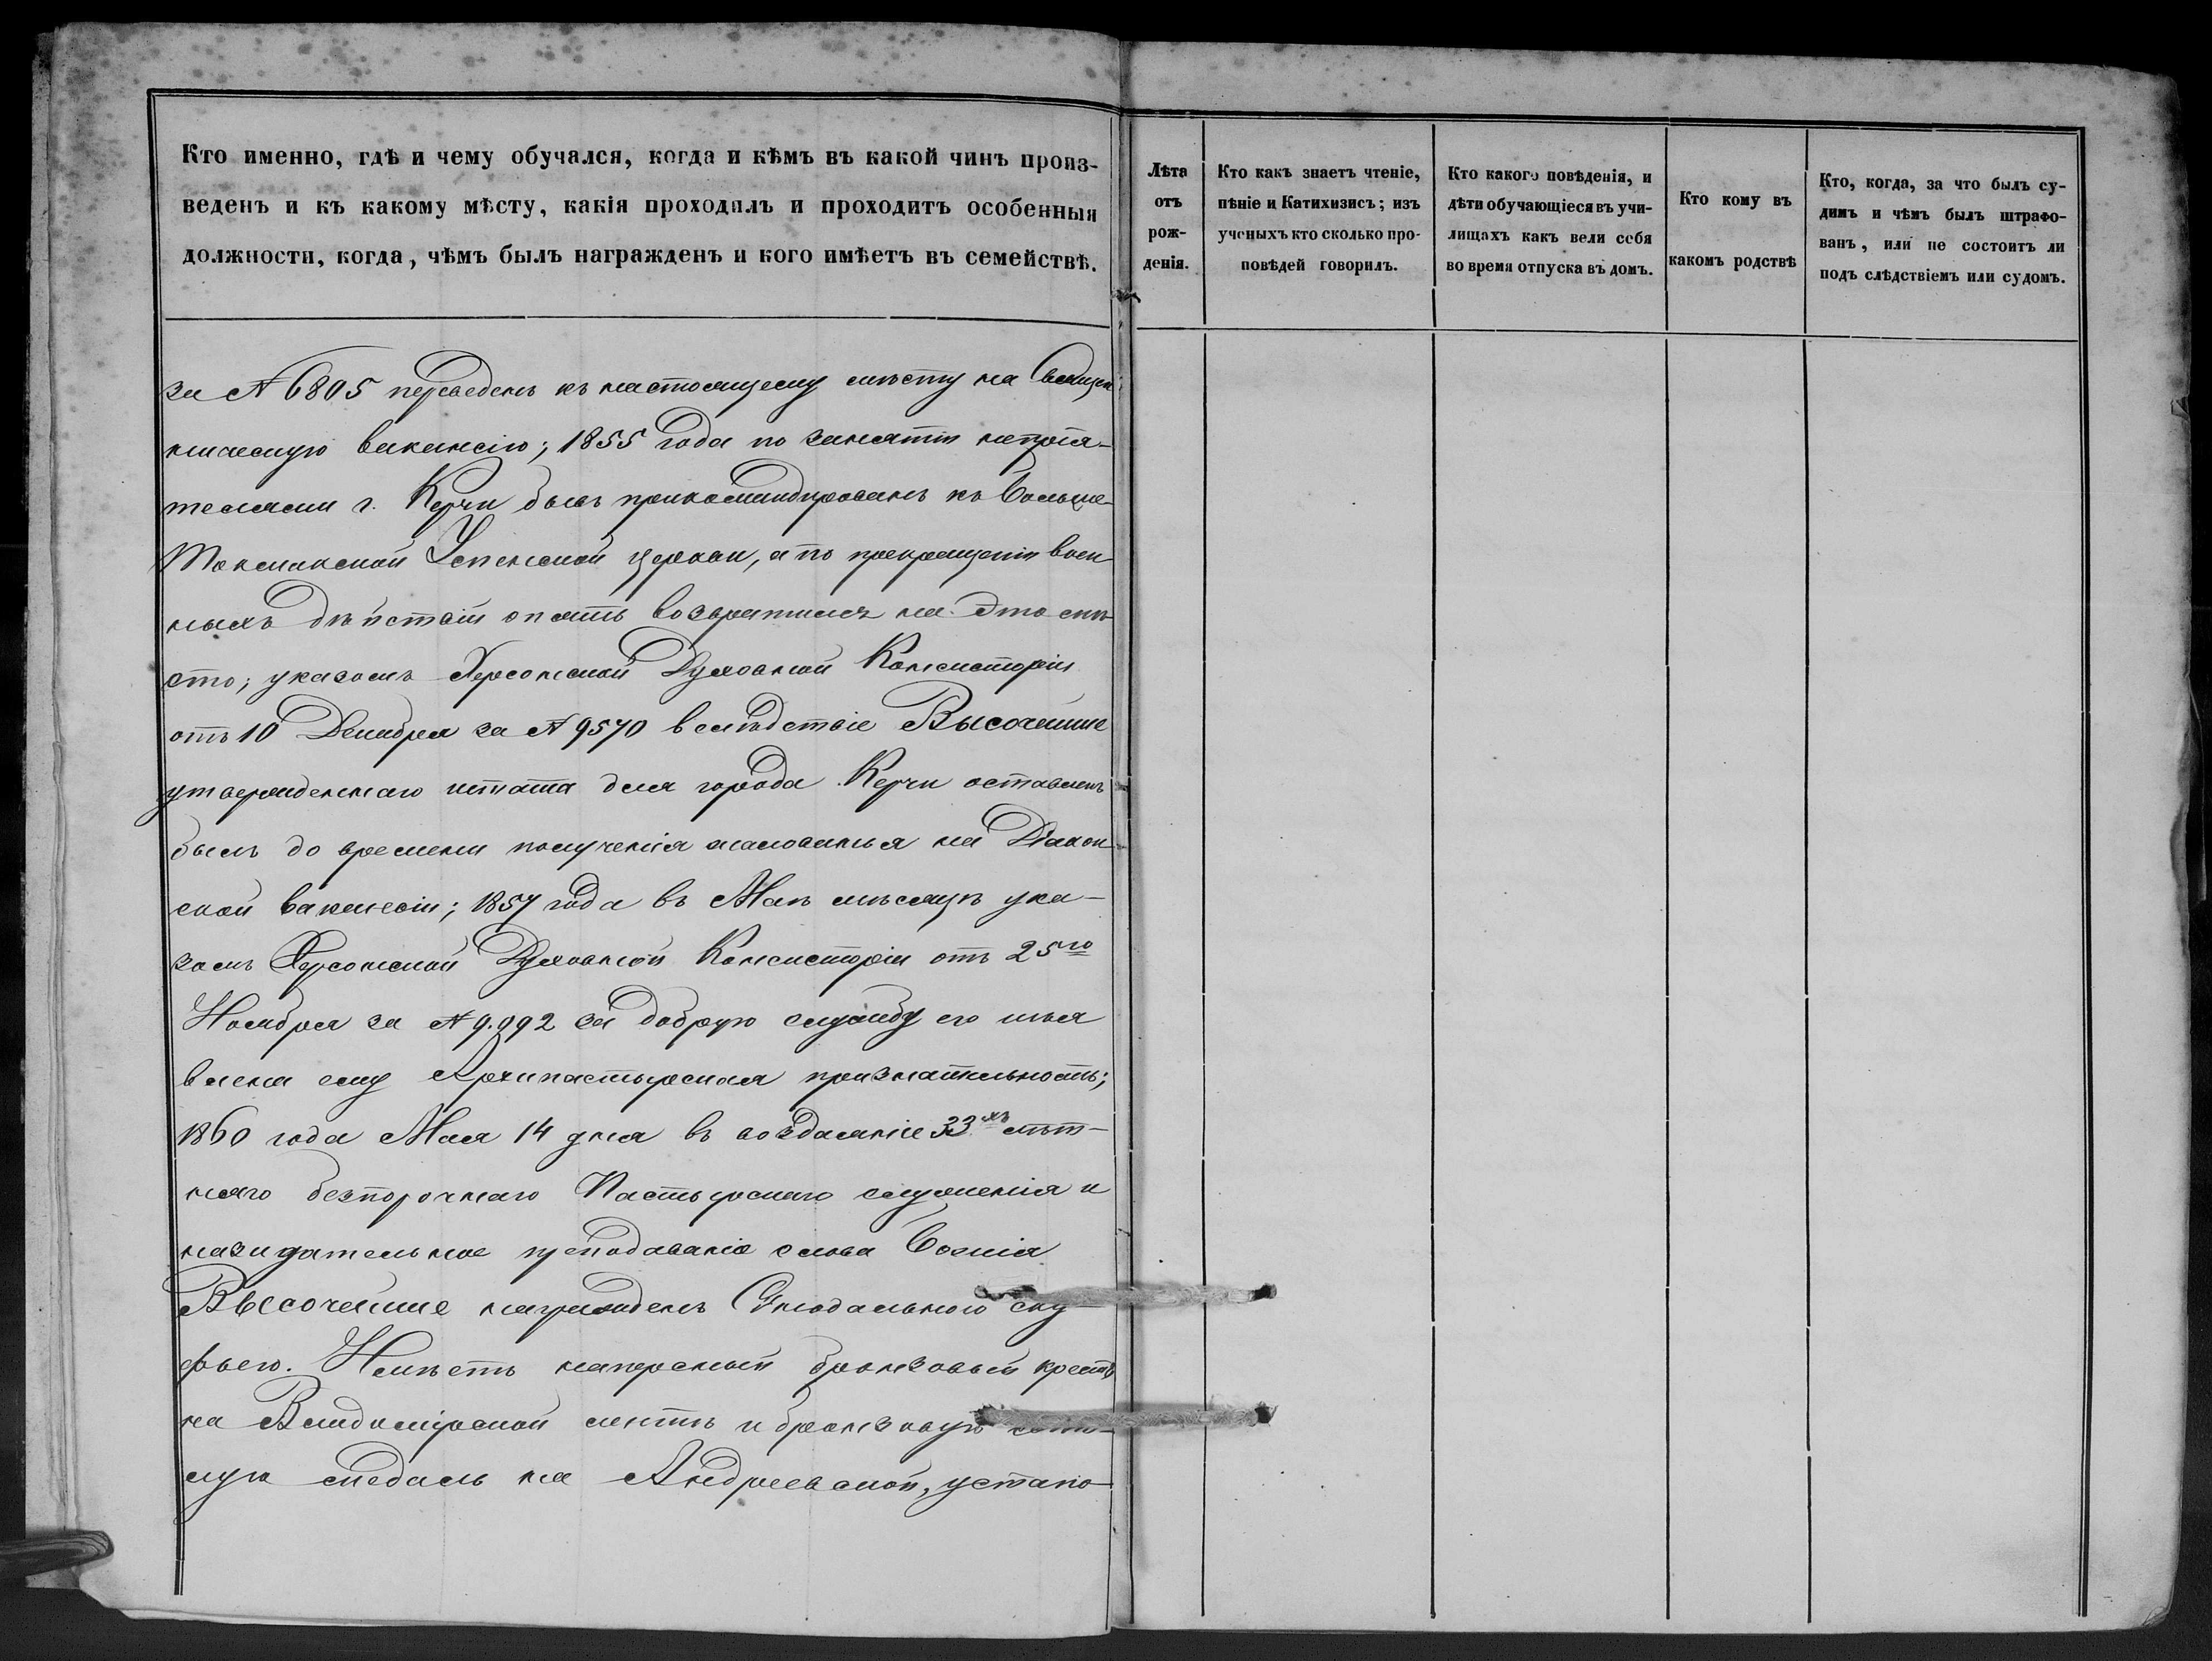 Кто именно, гдѣ и чему обучался, когда и кѣмъ въ какой чинъ произ-
веденъ и къ какому мѣсту, какія проходилъ и проходитъ особенныя
должности, когда, чѣмъ былъ награжденъ и кого имѣетъ въ семействѣ.
за № 6805 переведенъ къ настоящему мѣсту на Священ
ническую вакансію; 1855 года по занятіи непрія-
телями г. Керчи былъ прикомандированъ къ Больше-
Токмакской Успенской церкви, а по прекращеніи воен
ныхъ дѣйствій опять возвратился на это мѣ
сто; указомъ Херсонской Духовной Консисторіи
отъ 10 Декабря за № 9570 вслѣдствіе Высочайше
утвержденнаго штата для города Керчи оставленъ
былъ до времени полученія жалованья на Діакон
ской вакансіи; 1857 года въ Маѣ мѣсяцѣ ука-
зомъ Херсонской Духовной Консисторіи отъ 25го
Ноября за № 9.992 за добрую службу его изъя
влена ему Архипастырская признательность;
1860 года Мая 14 дня въ воздаяніе 33хъ лѣт-
няго безпорочнаго Пастырскаго служенія и
назидательное преподаваніе слова Божія
Высочайше награжденъ Сѵнодальною ску-
фьею. Имѣетъ наперсный бронзовый крестъ
на Владимірской лентѣ и бронзовую
лую медаль на Андреевской, устано-
Лѣта
отъ
рож-
денія.
Кто какъ знаетъ чтеніе,
пѣніе и Катихизисъ; изъ
ученыхъ кто сколько про-
повѣдей говорилъ.
Кто какого повѣденія, и
дѣти обучающіеся въ учи-
лищахъ какъ вели себя
во время отпуска въ домъ.
Кто кому въ
какомъ родствѣ
Кто, когда, за что былъ су-
димъ и чѣмъ былъ штрафо-
ванъ, или не состоитъ ли
подъ слѣдствіемъ или судомъ.